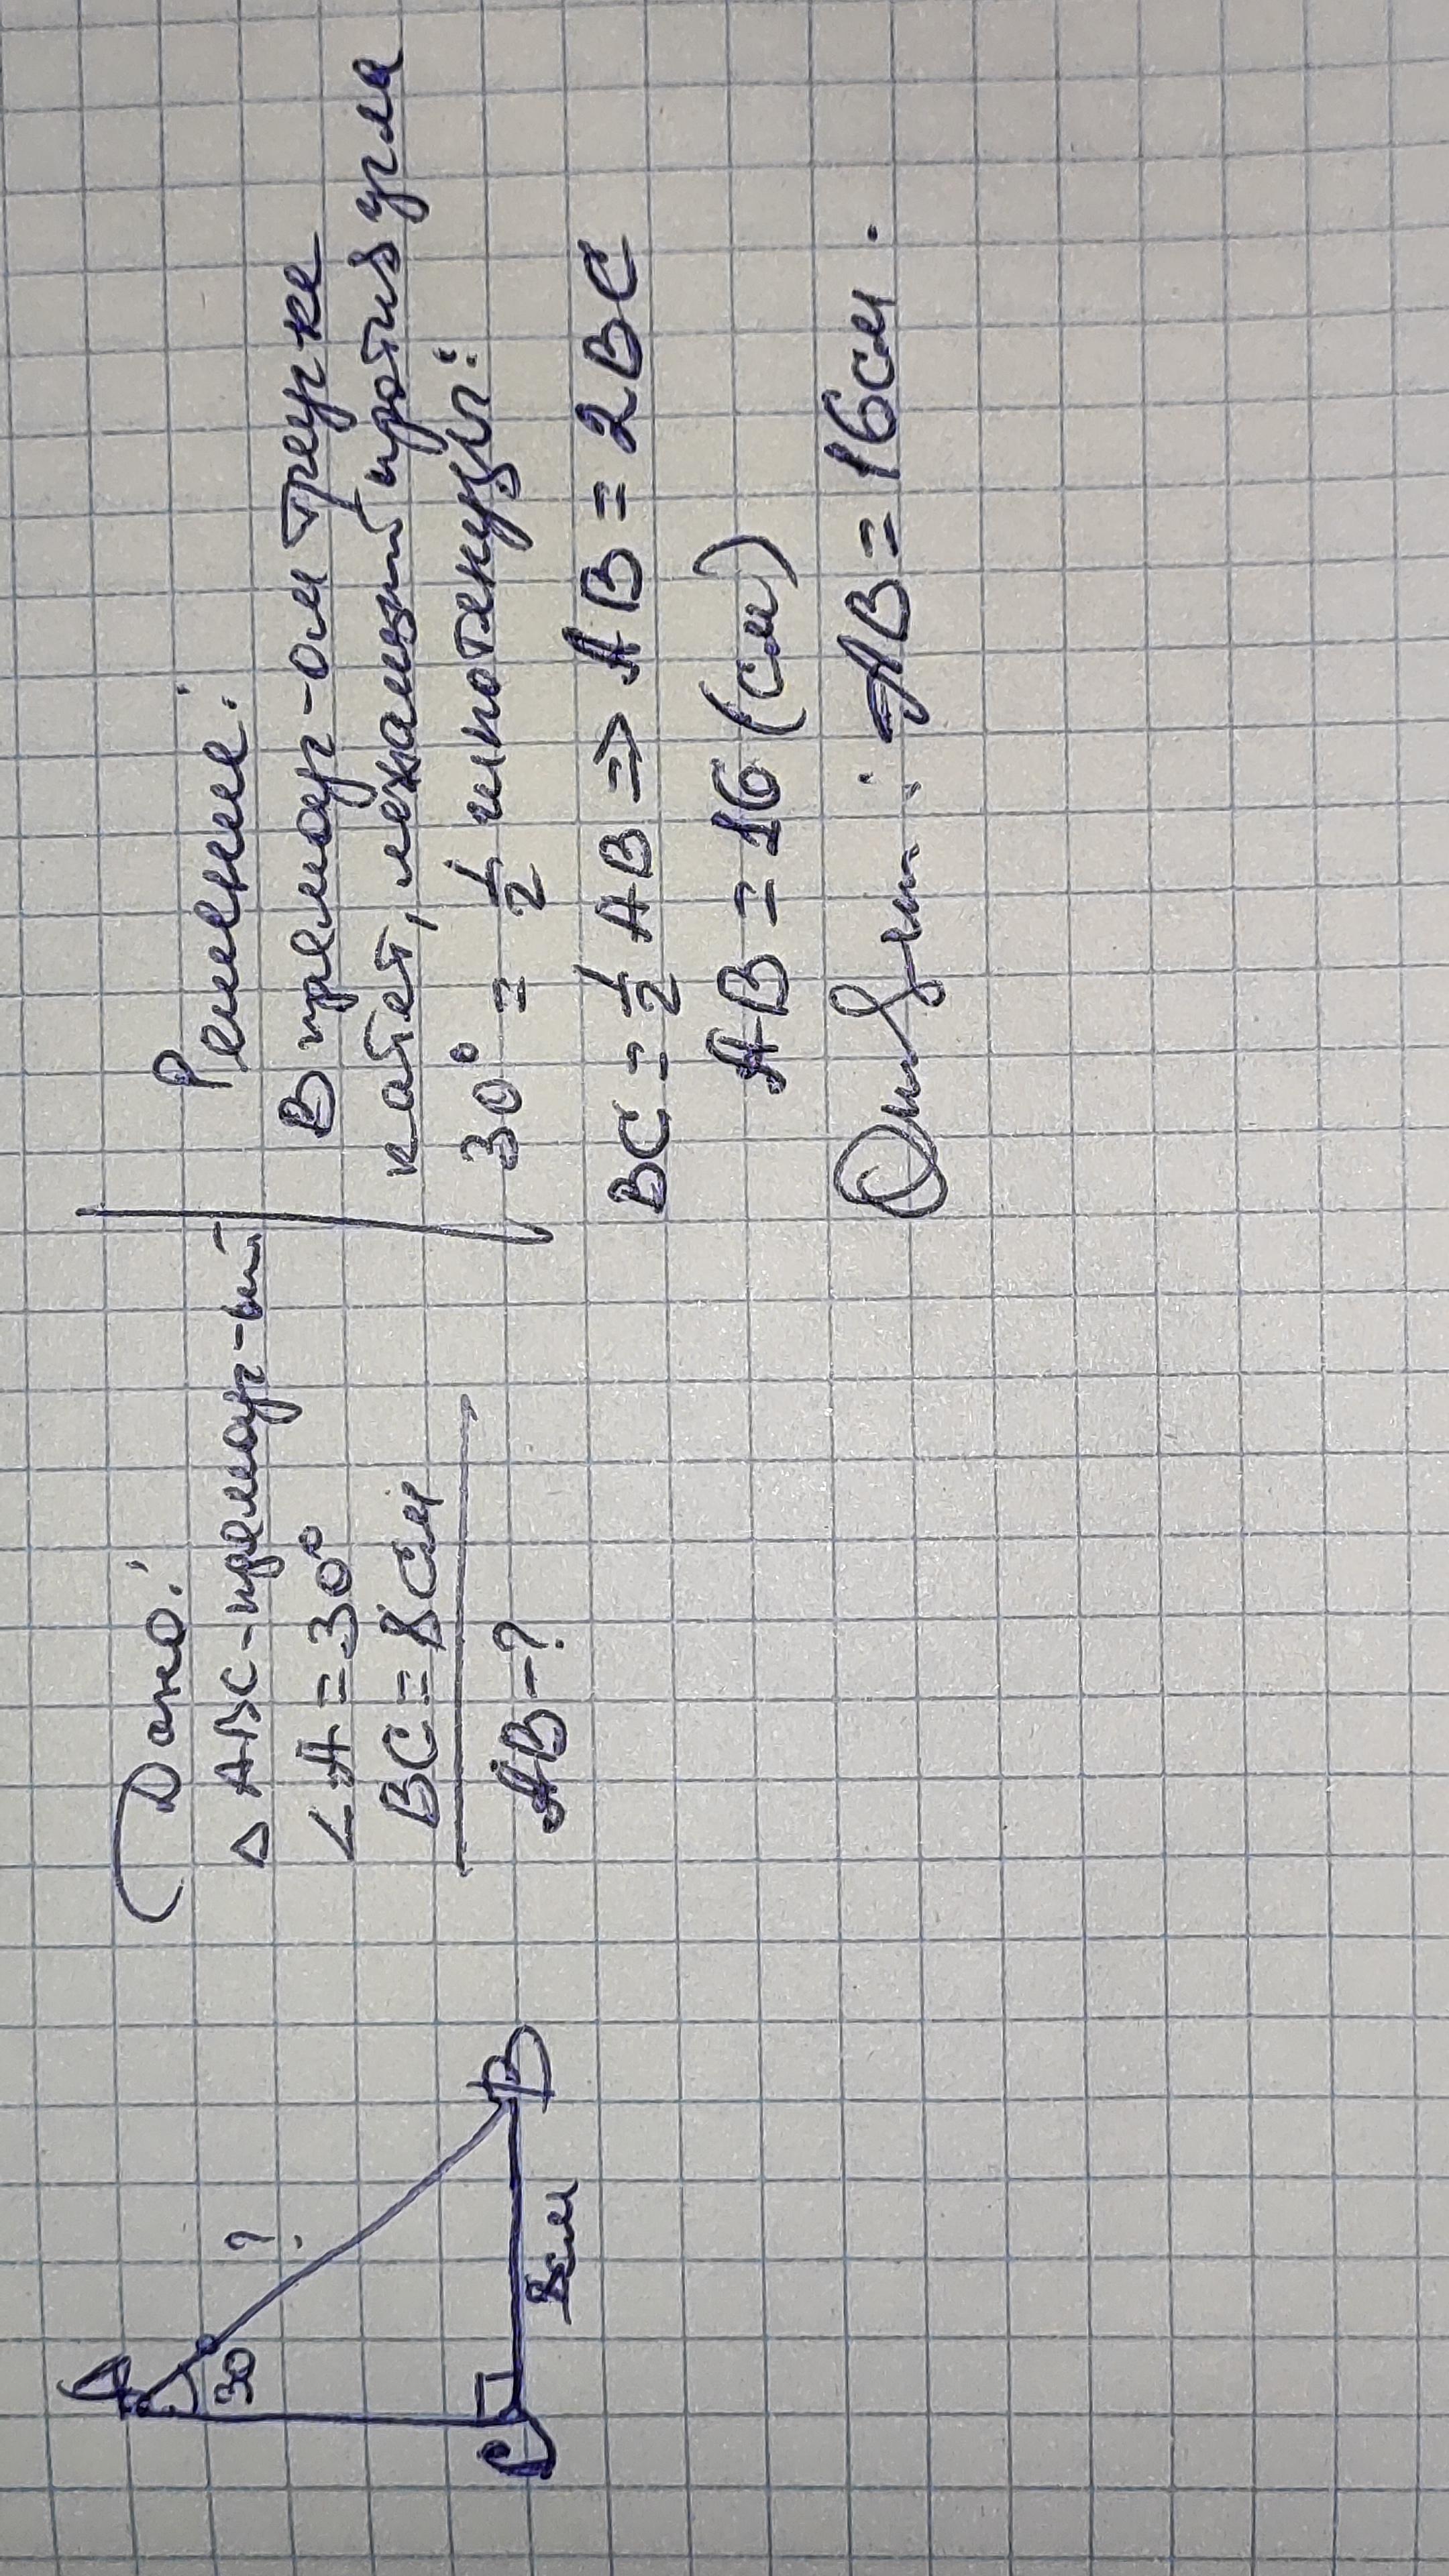 A
30°
?
C
8см
B
Дано:
△ ABC - прямоуг-ый
∠A = 30°
BC = 8см
AB - ?
Решение:
В прямоуг-ом треуг-ке
катет, лежащий против угла
30° = 1/2 гипотенузы:
BC = 1/2 AB => AB = 2BC
AB = 16 (см)
Ответ: AB = 16см.